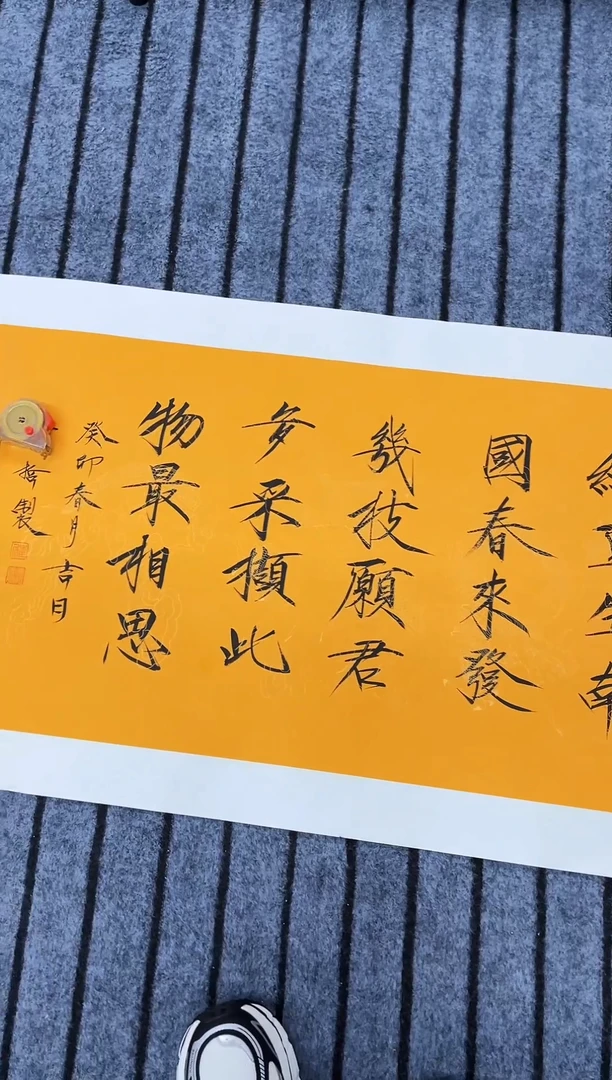 紅豆生南
國春來發
幾枝願君
多采擷此
物最相思
癸卯春月吉日
製